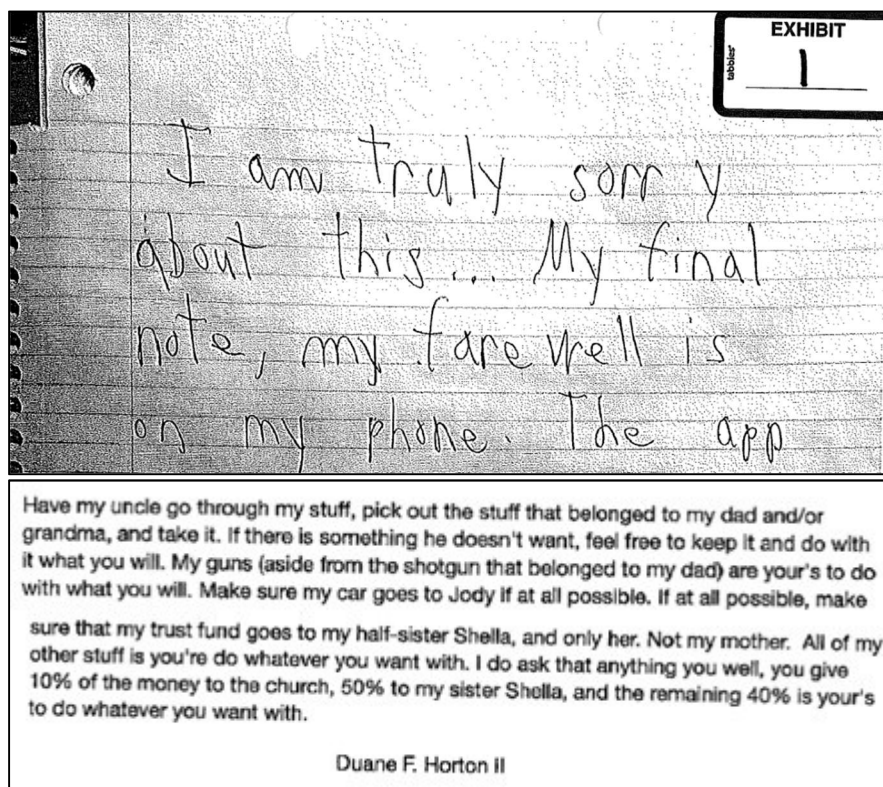 EXHIBIT
tabbies®
1
I am truly sorry
about this... My final
note, my farewell is
on my phone. The app
Have my uncle go through my stuff, pick out the stuff that belonged to my dad and/or
grandma, and take it. If there is something he doesn't want, feel free to keep it and do with
it what you will. My guns (aside from the shotgun that belonged to my dad) are your's to do
with what you will. Make sure my car goes to Jody if at all possible. If at all possible, make
sure that my trust fund goes to my half-sister Shella, and only her. Not my mother. All of my
other stuff is you're do whatever you want with. I do ask that anything you well, you give
10% of the money to the church, 50% to my sister Shella, and the remaining 40% is your's
to do whatever you want with.
Duane F. Horton II